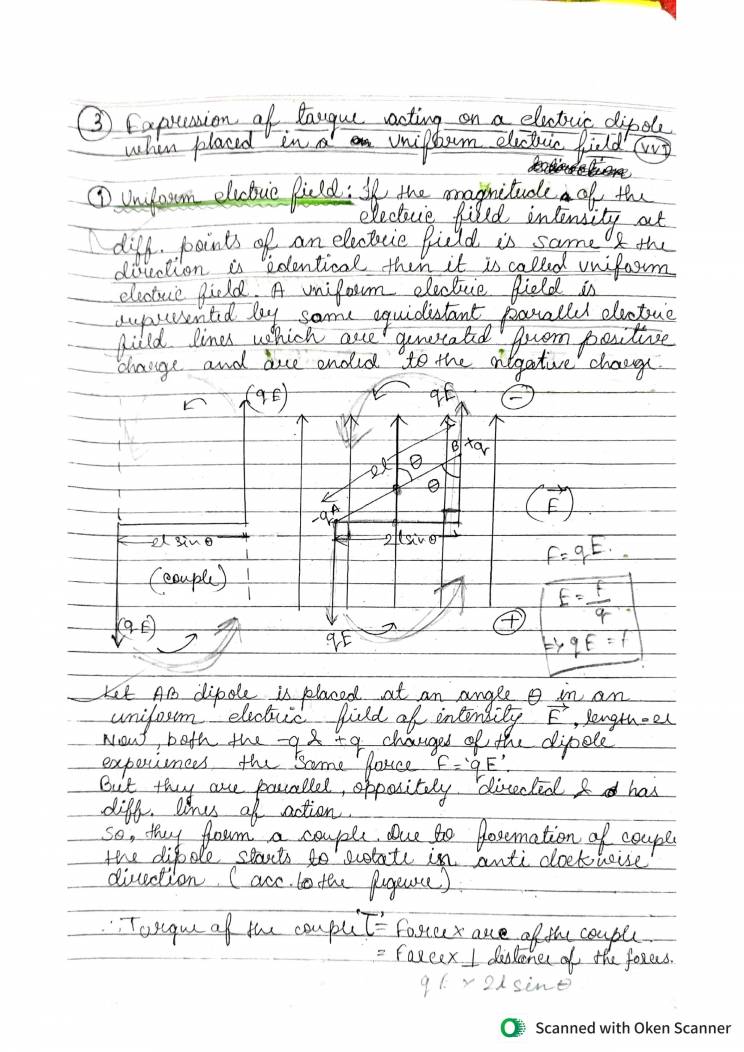 ③ Expression of torque acting on a electric dipole
when placed in a uniform electric field (VVI)
① Uniform electric field: If the magnitude of the
electric field intensity at
diff. points of an electric field is same & the
direction is identical then it is called uniform
electric field. A uniform electric field is
represented by some equidistant parallel electric
field lines which are generated from positive
charge and are ended to the negative charge.
(qE)
qE
−
2l
θ
B
+q
θ
-q
A
(E⃗)
2l sinθ
2l sinθ
F = qE.
(couple)
E = F/q
(qE)
qE
+
=> qE = f
Let AB dipole is placed at an angle θ in an
uniform electric field of intensity E⃗, length = 2l
Now, both the -q & +q charges of the dipole
experiences the same force F = 'qE'.
But they are parallel, oppositely directed & has
diff. lines of action.
So, they form a couple. Due to formation of couple
the dipole starts to rotate in anti clockwise
direction. (acc. to the figure)
∴ Torque of the couple 'τ' = Force x arc of the couple.
= Force x ⊥ distance of the forces.
qE x 2l sinθ
Scanned with Oken Scanner